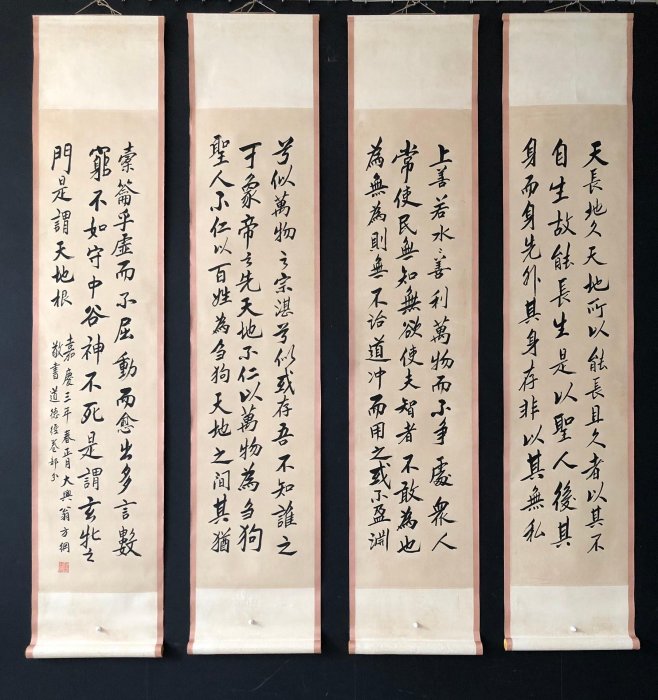 天長地久天地所以能長且久者以其不
自生故能長生是以聖人後其
身而身先外其身存非以其無私
上善若水〻善利萬物而不爭處衆人
常使民無知無欲使夫智者不敢為也
為無為則無不治道冲而用之或不盈淵
兮似萬物之宗湛兮似或存吾不知誰之
子象帝之先天地不仁以萬物為芻狗
聖人不仁以百姓為芻狗天地之間其猶
橐籥乎虛而不屈動而愈出多言數
窮不如守中谷神不死是謂玄牝之
門是謂天地根
嘉慶三年春正月大興翁方綱
敬書道德經